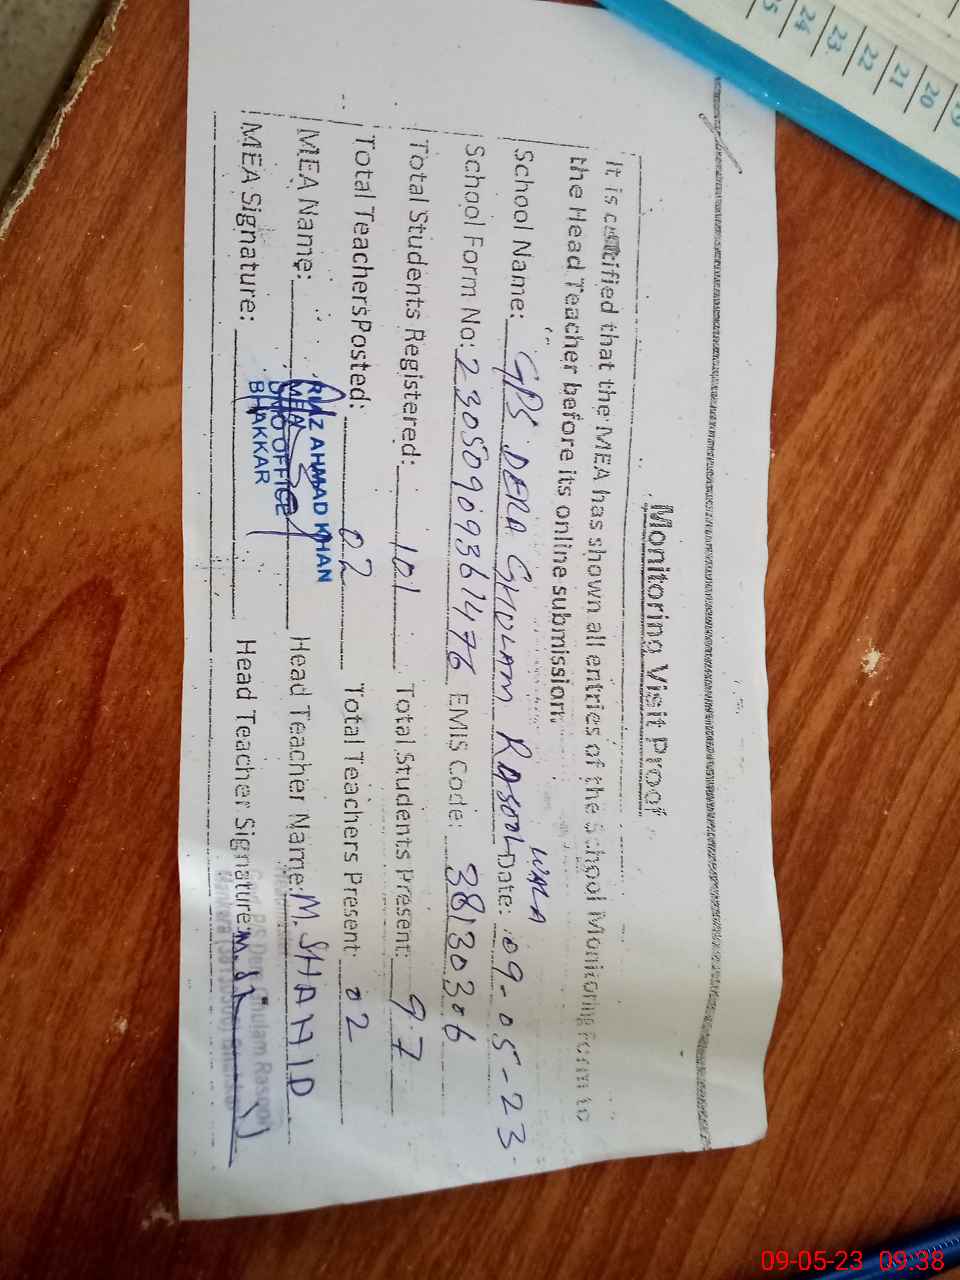 Monitoring Visit Proof
It is certified that the MEA has shown all entries of the School Monitoring Form to
the Head Teacher before its online submission.
School Name: GPS DERA GHULAM RASOOL WALA Date: 09-05-23
School Form No: 23050909361476 EMIS Code: 38130306
Total Students Registered: 101 Total Students Present: 97
Total Teachers Posted: 02 Total Teachers Present: 02
MEA Name: Head Teacher Name: M. SHAHID
MEA Signature: Head Teacher Signature:
RIAZ AHMAD KHAN
MEA
OFFICE
BHAKKAR
Ghulam Rasool
25
24
23
22
21
20
19
09-05-23 09:38